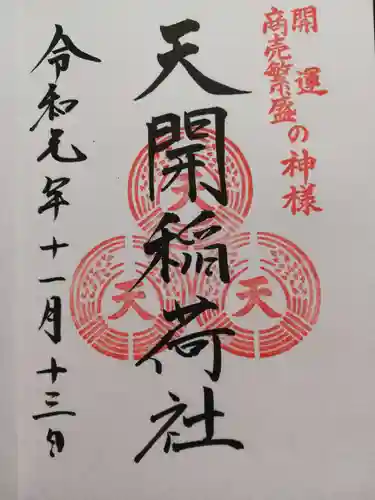 開運
商売繁盛
の神様
天開稲荷社
天
天
天
令和元年十一月十三日